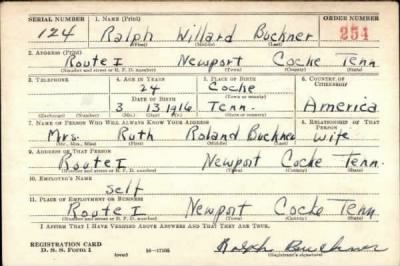 SERIAL NUMBER 1. NAME (Print) ORDER NUMBER
124 Ralph Willard Buckner 254
(First) (Middle) (Last)
2. ADDRESS (Print)
Route 1 Newport Cocke Tenn
(Number and street or R. F. D. number) (Town) (County) (State)
3. TELEPHONE 4. AGE IN YEARS 5. PLACE OF BIRTH 6. COUNTRY OF CITIZENSHIP
24 Cocke
DATE OF BIRTH (Town or county)
3 13 1916 Tenn. America
7. NAME OF PERSON WHO WILL ALWAYS KNOW YOUR ADDRESS 8. RELATIONSHIP OF THAT PERSON
Mrs. Ruth Roland Buckner wife
(Mr., Mrs., Miss) (First) (Middle) (Last)
9. ADDRESS OF THAT PERSON
Route 1 Newport Cocke Tenn.
(Number and street or R. F. D. number) (Town) (County) (State)
10. EMPLOYER'S NAME
Self
11. PLACE OF EMPLOYMENT OR BUSINESS
Route 1 Newport Cocke Tenn
(Number and street or R. F. D. number) (Town) (County) (State)
I AFFIRM THAT I HAVE VERIFIED ABOVE ANSWERS AND THAT THEY ARE TRUE.
REGISTRATION CARD
D. S. S. Form 1 (over) Ralph Buckner
(Registrant's signature)